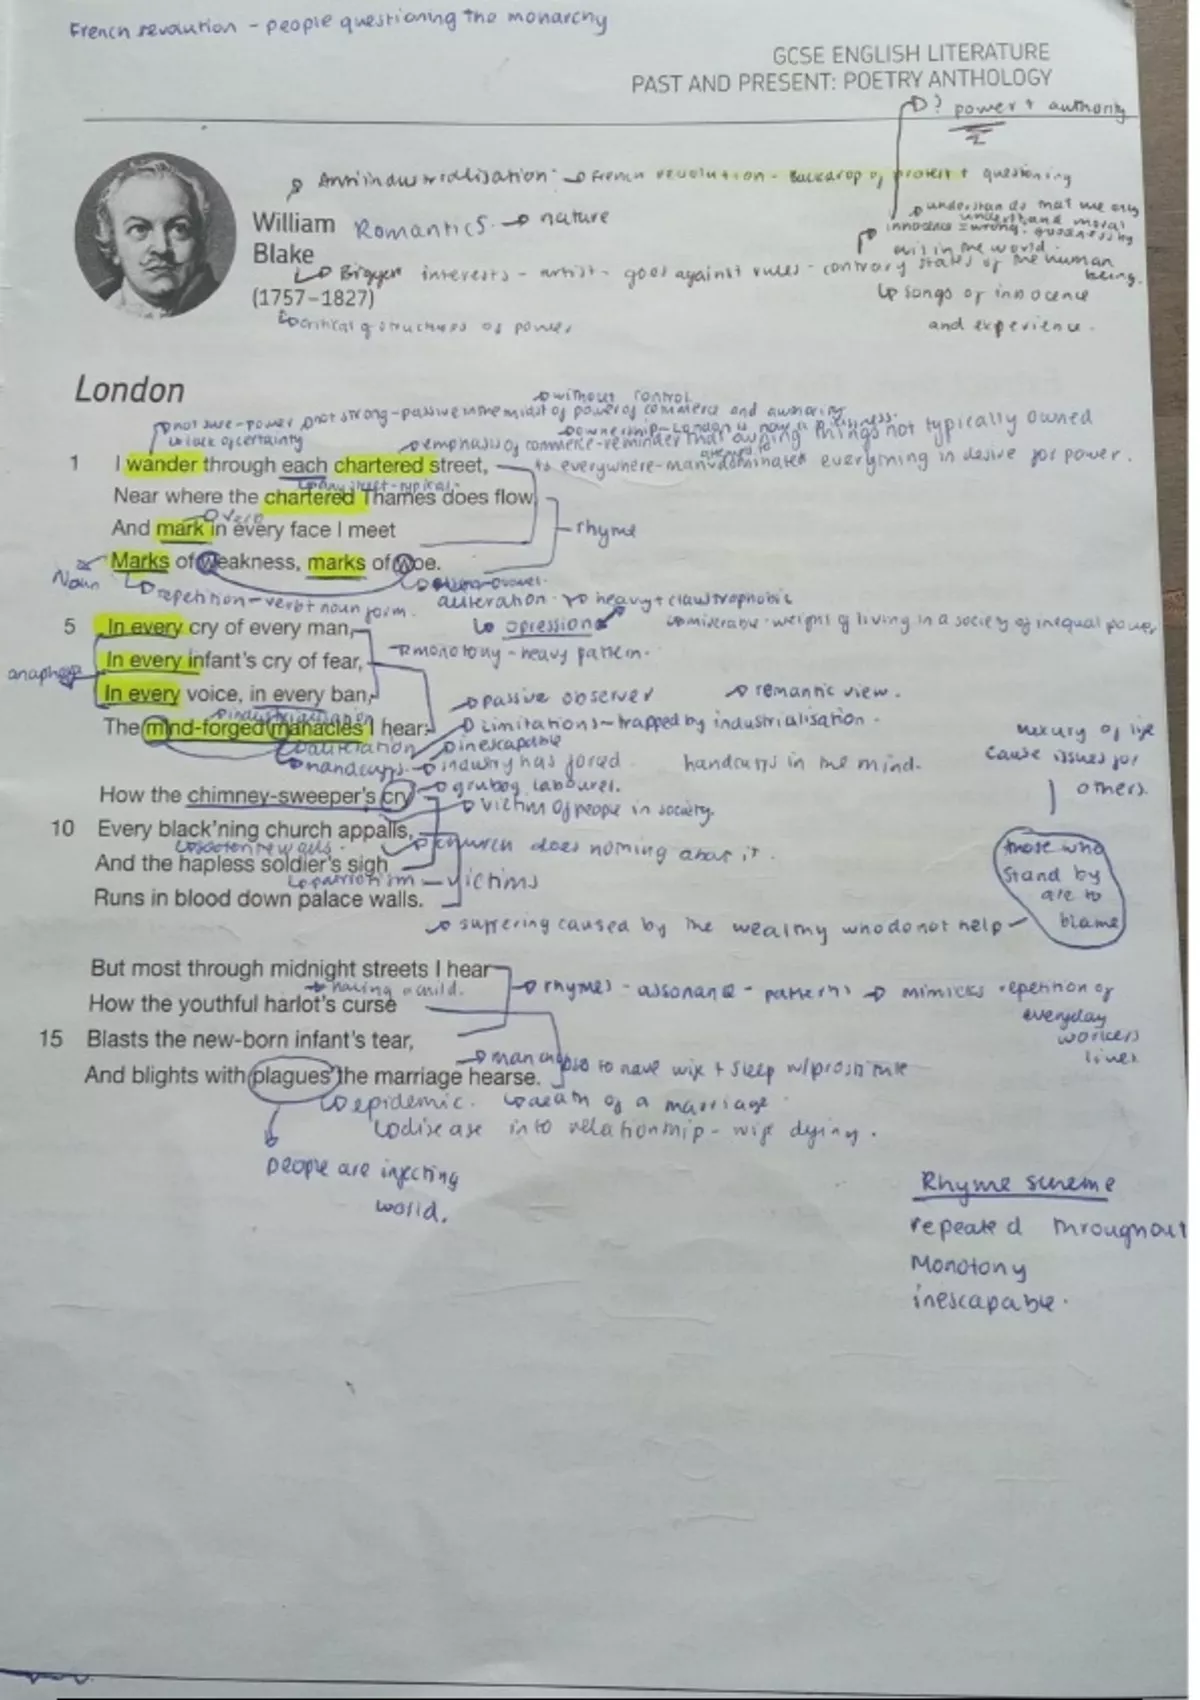 French revolution - people questioning the monarchy
GCSE ENGLISH LITERATURE
PAST AND PRESENT: POETRY ANTHOLOGY
? power + authority
Antiindustrialisation: French revolution - Backdrop of protest + questioning
William Romantics. nature
understands that we only
understand moral
innocence = wrong. goodness by
evil in the world.
Blake
Bigger interests - artist - goes against rules - contrary states of the human being.
(1757–1827)
songs of innocence
and experience.
critical of structures of power
London
without control
not sure - power not strong - passive in the midst of power of commerce and authority
lack of certainty
ownership - London is now a business.
emphasis of commerce - reminder that owning things not typically owned
1 I wander through each chartered street,
to everywhere - man attempted to dominated everything in desire for power.
any street - typical
Near where the chartered Thames does flow,
verb
And mark in every face I meet
rhyme
Marks of weakness, marks of woe.
Noun
repetition - verb + noun form.
alliteration. heavy + claustrophobic
5 In every cry of every man,
opression
miserable - weight of living in a society of inequal power
In every infant's cry of fear,
monotony - heavy pattern.
anaphora
In every voice, in every ban,
passive observer romantic view.
industrialisation
The mind-forged manacles I hear:
Limitations - trapped by industrialisation.
alliteration inescapable
handcuffs industry has forced handcuffs in the mind.
luxury of life
cause issues for
others.
How the chimney-sweeper's cry
labourer.
victim of people in society.
10 Every black'ning church appalls,
church does nothing about it.
And the hapless soldier's sigh
patriotism - victims
Runs in blood down palace walls.
those who
stand by
are to
blame
suffering caused by the wealthy who do not help
But most through midnight streets I hear
having a child.
rhymes - assonance - patterns mimicks repetition of
everyday
workers
lives
How the youthful harlot's curse
15 Blasts the new-born infant's tear,
man chooses to have wife + sleep w/prostitute
And blights with plagues the marriage hearse.
epidemic. death of a marriage.
disease into relationship - wife dying.
people are infecting
world.
Rhyme scheme
repeated throughout
Monotony
inescapable.